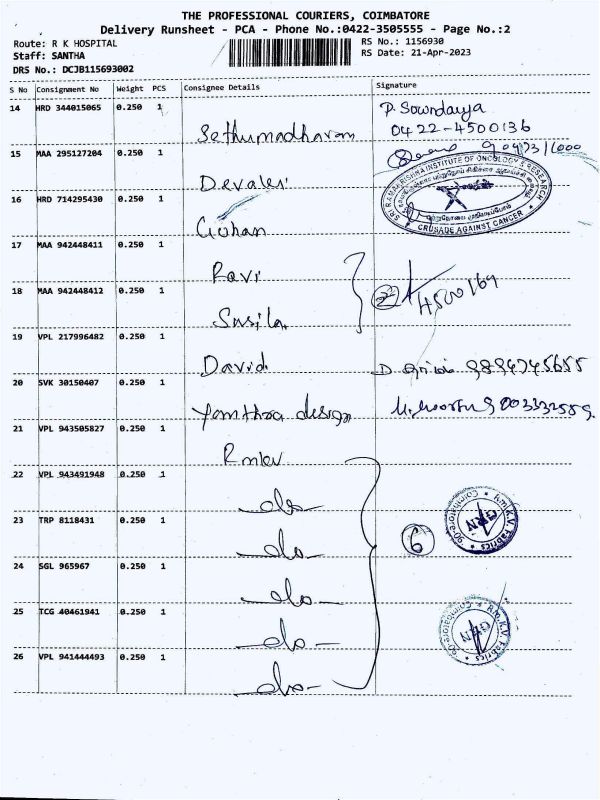 THE PROFESSIONAL COURIERS, COIMBATORE
Delivery Runsheet - PCA - Phone No.:0422-3505555 - Page No.:2
Route: R K HOSPITAL
RS No.: 1156930
Staff: SANTHA
RS Date: 21-Apr-2023
DRS No.: DCJB115693002
S No Consignment No Weight PCS Consignee Details Signature
14 HRD 344015065 0.250 1
Sethumadhavan P. Sowndayya
0422-4500136
15 MAA 295127204 0.250 1
Devaler
SRI RAMAKRISHNA INSTITUTE OF ONCOLOGY & RESEARCH
CRUSADE AGAINST CANCER
16 HRD 714295430 0.250 1
Guhan
17 MAA 942448411 0.250 1
Ravi
2 4500169
18 MAA 942448412 0.250 1
Susila
19 VPL 217996482 0.250 1
David D
20 SVK 30150407 0.250 1
design
21 VPL 943505827 0.250 1
Rmkv
22 VPL 943491948 0.250 1
-do-
23 TRP 8118431 0.250 1
-do-
6
Rm.K.V. Fabrics
GRN
24 SGL 965967 0.250 1
-do-
25 TCG 40461941 0.250 1
-do-
Rm.K.V. Fabrics
GRN
26 VPL 941444493 0.250 1
-do-